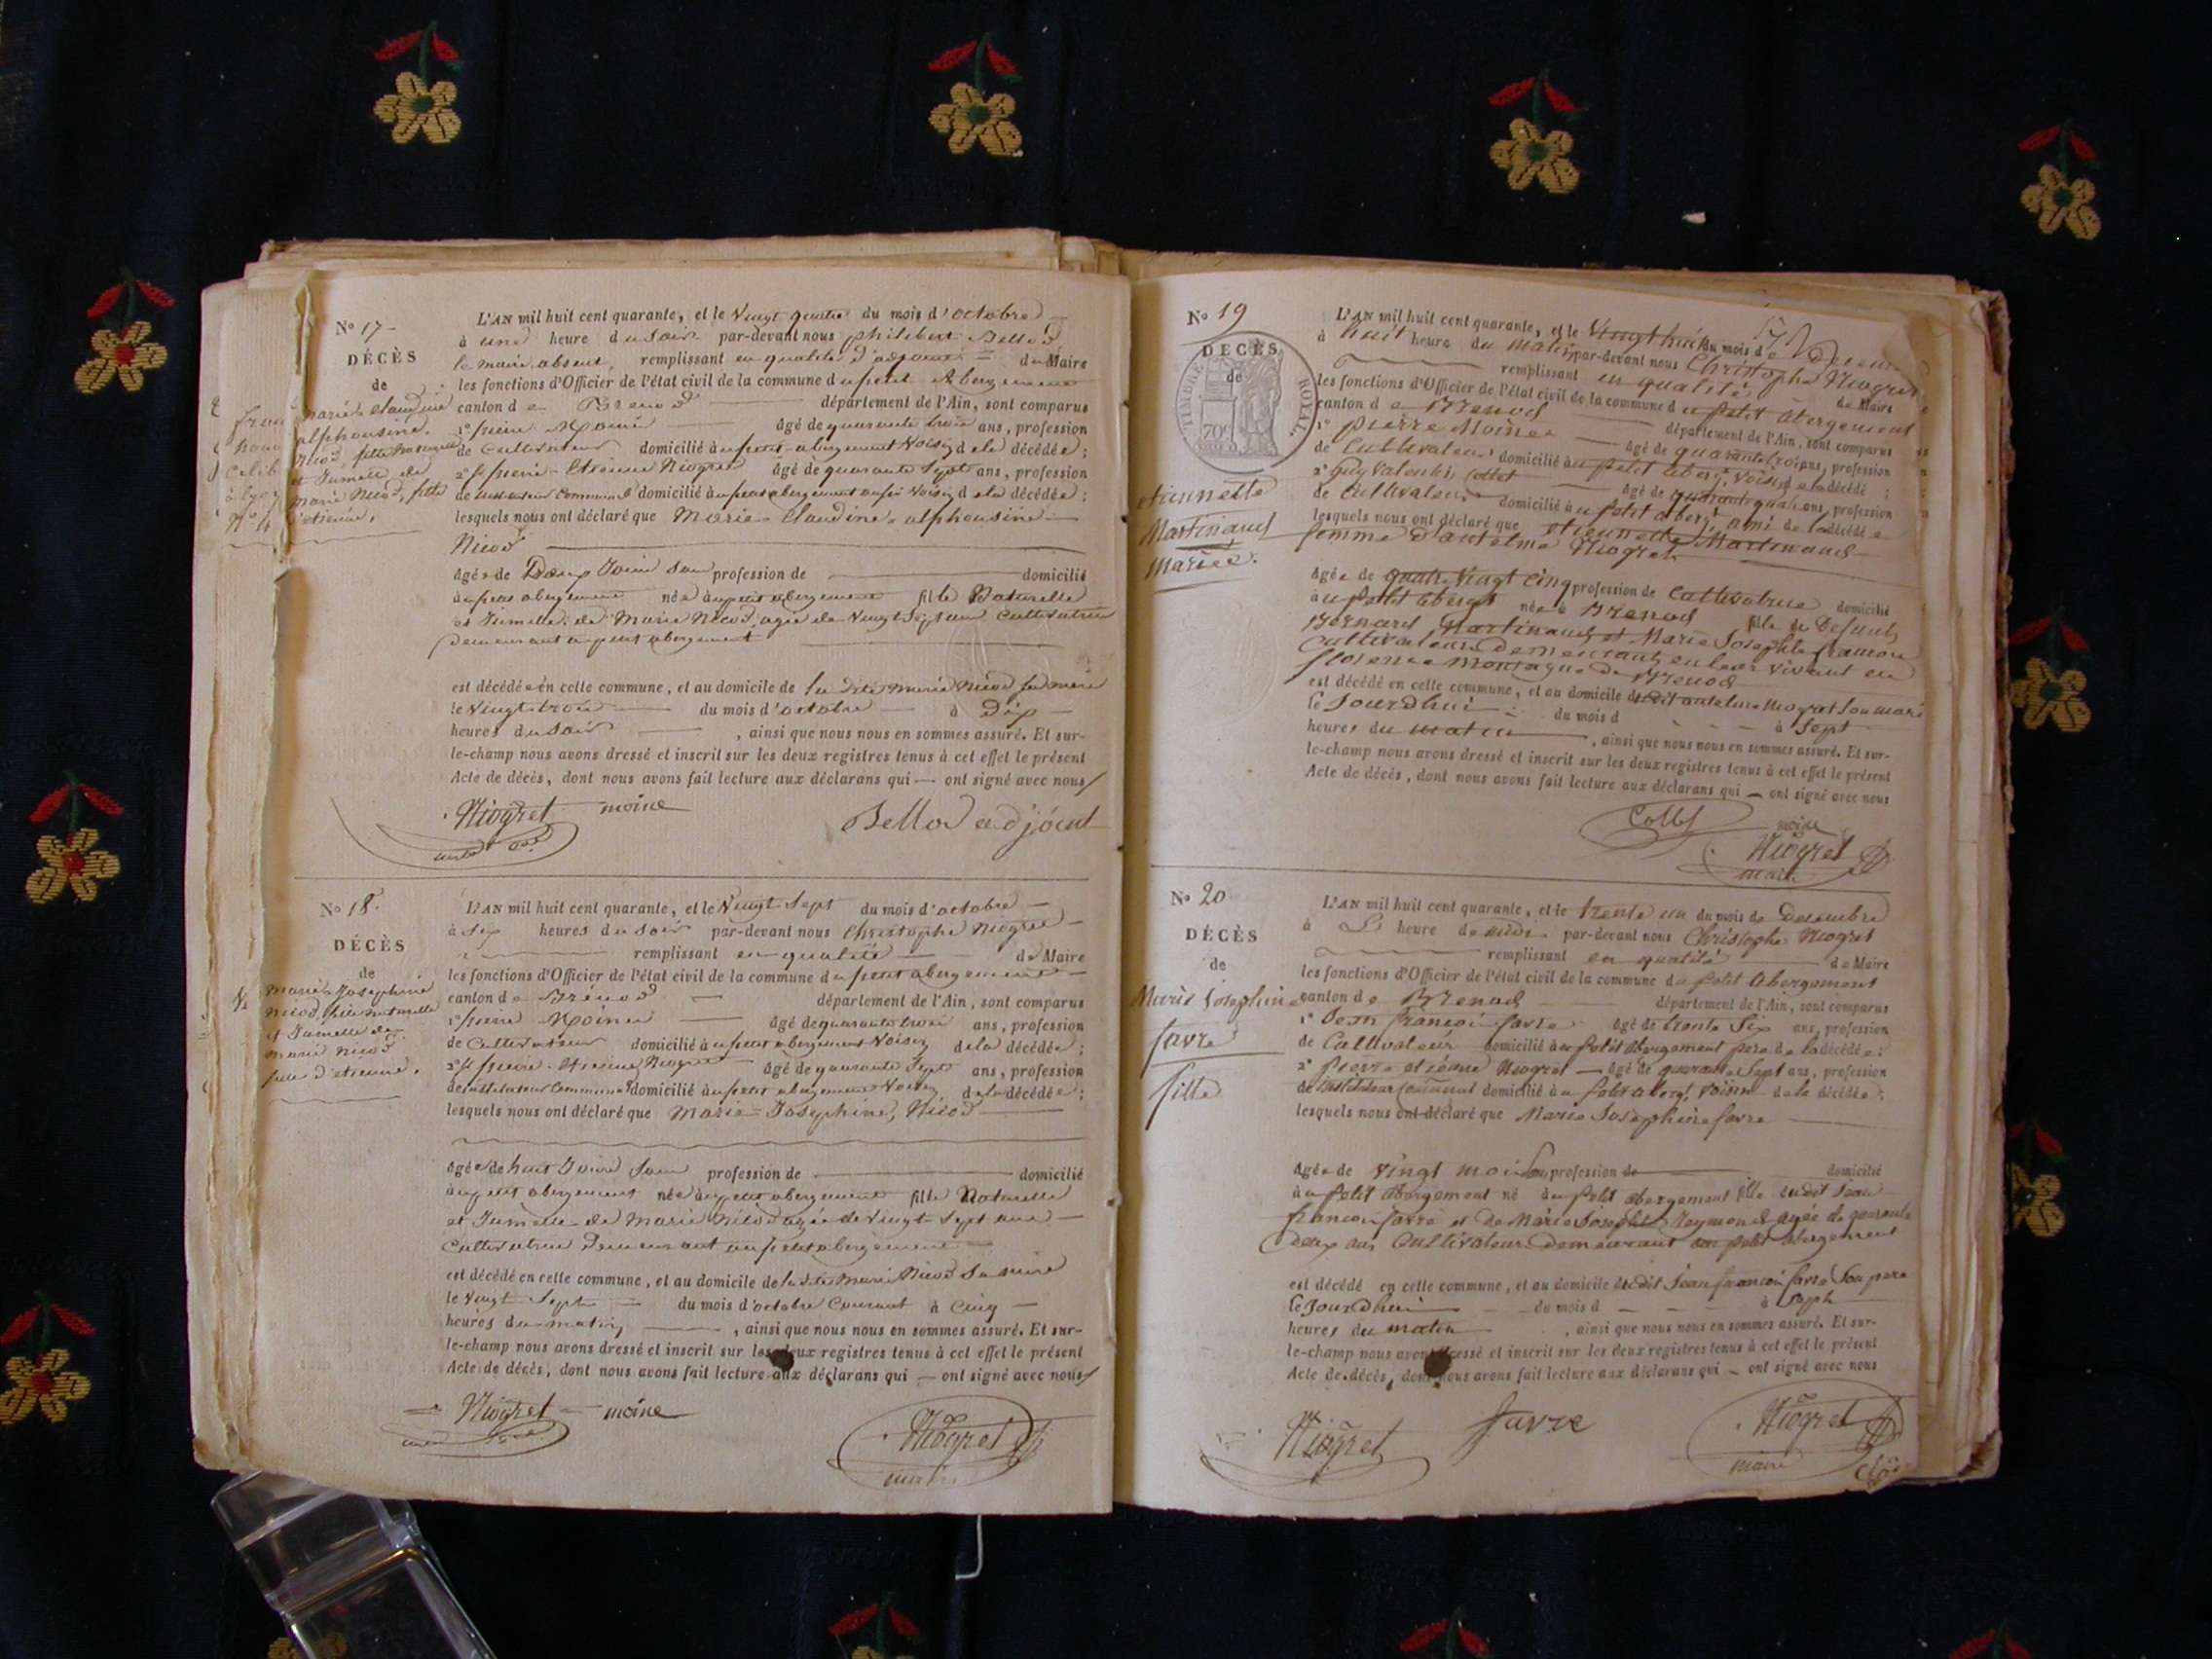 No 17
DÉCÈS
de
marie claudine
alphonsine
Nicod, fille naturelle
et Jumelle de
Marie Nicod, fille
d'etienne.
L'AN mil huit cent quarante, et le Vingt quatre du mois d'octobre
à une heure du soir par-devant nous philibert Bellod
le maire absent, remplissant en qualité d'adjoint de Maire
les fonctions d'Officier de l'état civil de la commune du petit Abergement
canton de Brenod département de l'Ain, sont comparus
1° pierre Moine âgé de quarante trois ans, profession
de Cultivateur domicilié au petit abergement Voisin de la décédée;
2° pierre Etienne Niogret âgé de quarante Sept ans, profession
de instituteur Communal domicilié au petit abergement aussi Voisin de la décédée;
lesquels nous ont déclaré que Marie Claudine alphonsine
Nicod
âgée de Deux Jours profession de domicilié
au petit abergement née au petit abergement fille Naturelle
et Jumelle de Marie Nicod, agée de Vingt Sept ans Cultivatrice
Demeurant au petit abergement
est décédée en cette commune, et au domicile de la dite Marie Nicod sa mère
le Vingt trois du mois d'octobre à Dix
heures du soir, ainsi que nous nous en sommes assuré. Et sur-
le-champ nous avons dressé et inscrit sur les deux registres tenus à cet effet le présent
Acte de décès, dont nous avons fait lecture aux déclarans qui — ont signé avec nous
Niogret moine
Bellod adjoint
No 18.
DÉCÈS
de
Marie Josephine
Nicod, fille naturelle
et Jumelle de
Marie Nicod
fille d'etienne.
L'AN mil huit cent quarante, et le Vingt Sept du mois d'octobre
à six heures du soir par-devant nous Christophe Niogret
remplissant en qualité de Maire
les fonctions d'Officier de l'état civil de la commune du petit abergement
canton de Brénod département de l'Ain, sont comparus
1° pierre Moine âgé de quarante trois ans, profession
de Cultivateur domicilié au petit abergement Voisin de la décédée;
2° pierre Etienne Niogret âgé de quarante Sept ans, profession
de instituteur Communal domicilié au petit abergement Voisin de la décédée;
lesquels nous ont déclaré que Marie Josephine, Nicod
âgée de huit Jours profession de domicilié
au petit abergement née au petit abergement fille Naturelle
et Jumelle de Marie Nicod agée de Vingt Sept ans
Cultivatrice Demeurant au petit abergement
est décédé en cette commune, et au domicile de la dite Marie Nicod Sa mère
le Vingt Sept du mois d'octobre Courant à Cinq
heures du matin, ainsi que nous nous en sommes assuré. Et sur-
le-champ nous avons dressé et inscrit sur les deux registres tenus à cet effet le présent
Acte de décès, dont nous avons fait lecture aux déclarans qui — ont signé avec nous
Niogret moine
Niogret
maire
No 19
DÉCÈS
de
TIMBRE ROYAL.
70c
etiennette
Martinaud
Mariée.
L'AN mil huit cent quarante, et le Vingt huit du mois de Decembre
à huit heure du matin par-devant nous Christophe Niogret
remplissant en qualité de Maire
les fonctions d'Officier de l'état civil de la commune du petit abergement
canton de Brenod département de l'Ain, sont comparus
1° pierre Moine âgé de quarante trois ans, profession
de Cultivateur domicilié au petit aberg. Voisin de la décédé;
2° Guy Valentin Collet âgé de quatre ans, profession
de Cultivateur domicilié au petit aberg. ami de la décédée
lesquels nous ont déclaré que etiennette Martinaud
femme d'antelme Niogret
âgée de quatre Vingt Cinq profession de Cultivatrice domicilié
au petit abergt née à Brenod fille de Defunts
Bernard Martinaud et Marie Josephte
Cultivateurs Demeurant en leur vivant en
montagne de Brenod
est décédé en cette commune, et au domicile dudit antelme Niogret son mari
le Jourdhui du mois d à Sept
heures du matin, ainsi que nous nous en sommes assuré. Et sur-
le-champ nous avons dressé et inscrit sur les deux registres tenus à cet effet le présent
Acte de décès, dont nous avons fait lecture aux déclarans qui — ont signé avec nous
Collet
moine
Niogret
maire
No 20
DÉCÈS
de
Marie Josephine
favre
fille
L'AN mil huit cent quarante, et le trente un du mois de Decembre
à heure de midi par-devant nous Christophe Niogret
remplissant en qualité de Maire
les fonctions d'Officier de l'état civil de la commune du petit Abergement
canton de Brenod département de l'Ain, sont comparus
1° Jean françois favre âgé de trente Six ans, profession
de Cultivateur domicilié au petit Abergement pere de la décédée;
2° pierre etiéne Niogret âgé de quarante Sept ans, profession
de instituteur communal domicilié au petit aberg. voisin de la décédée;
lesquels nous ont déclaré que Marie Josephine favre
âgée de vingt mois profession de domicilié
au petit Abergement né au petit abergement fille dudit Jean
francois favre et de Marie Josephte Reymond agée de quarante
Deux ans Cultivateurs Demeurant au petit abergement
est décédé en cette commune, et au domicile dudit Jean francois favre Son pere
le Jourdhui du mois d à Sept
heures du matin, ainsi que nous nous en sommes assuré. Et sur-
le-champ nous avons dressé et inscrit sur les deux registres tenus à cet effet le présent
Acte de décès, dont nous avons fait lecture aux déclarans qui — ont signé avec nous
Niogret favre Niogret
maire